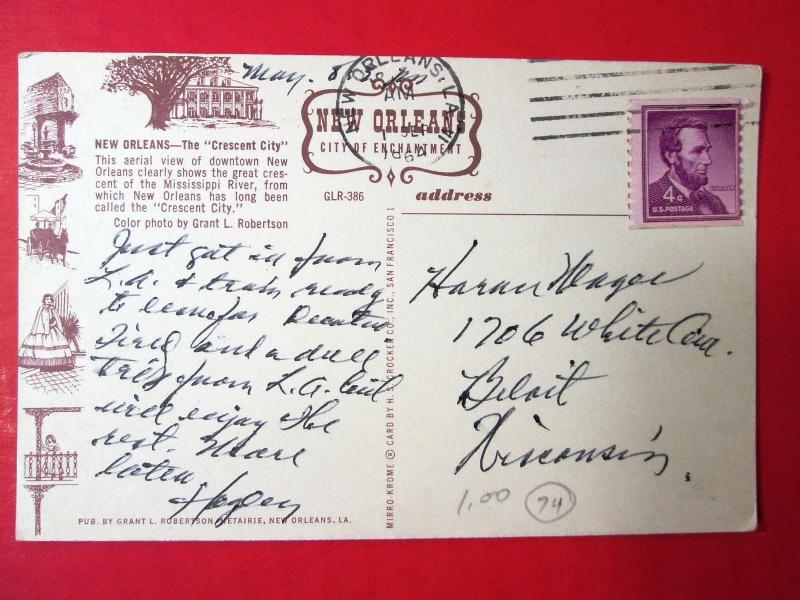 May. 8
NEW ORLEANS, LA.
AM
1964
NEW ORLEANS
CITY OF ENCHANTMENT
NEW ORLEANS—The "Crescent City"
This aerial view of downtown New
Orleans clearly shows the great cres-
cent of the Mississippi River, from
which New Orleans has long been
called the "Crescent City."
Color photo by Grant L. Robertson
GLR-386
address
LINCOLN
4¢
U.S. POSTAGE
Just got in from
L.A. & train ready
to leave for Decatur
Tired and a dull
trip from L.A. but
will enjoy the
rest. More
later
MIRRO-KROME ® CARD BY H. S. CROCKER CO., INC., SAN FRANCISCO 1
1706 White Ave.
Beloit
Wisconsin.
1.00
74
PUB. BY GRANT L. ROBERTSON, METAIRIE, NEW ORLEANS, LA.